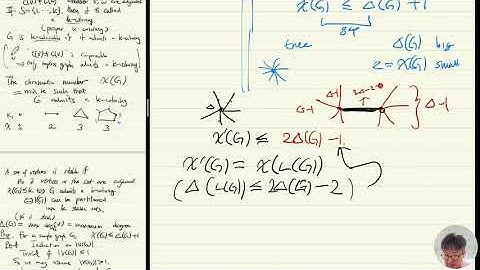 If S={1,...,k}, then it is called
a k-coloring.
(proper k-coloring)
G is k-colorable if it admits a k-coloring
The chromatic number χ(G)
= min k such that
G admits a k-coloring
χ: 1 2 3 3
A set of vertices is stable if
no 2 vertices in the set are adjacent
χ(G)≤k ⇔ G admits a k-coloring
⇔ V(G) can be partitioned
into k stable sets.
Δ(G) = max deg(v) = maximum degree
For a simple graph G, χ(G)≤Δ(G)+1
Induction on |V(G)|
Trivial if |V(G)|≤1
So we may assume |V(G)|>1.
χ(G) ≤ Δ(G)+1
tree Δ(G) big
2=χ(G) small
Δ Δ-1 2Δ-2 Δ-1
χ(G) ≤ 2Δ(G)-1.
χ'(G) = χ(L(G))
(Δ(L(G)) ≤ 2Δ(G)-2)